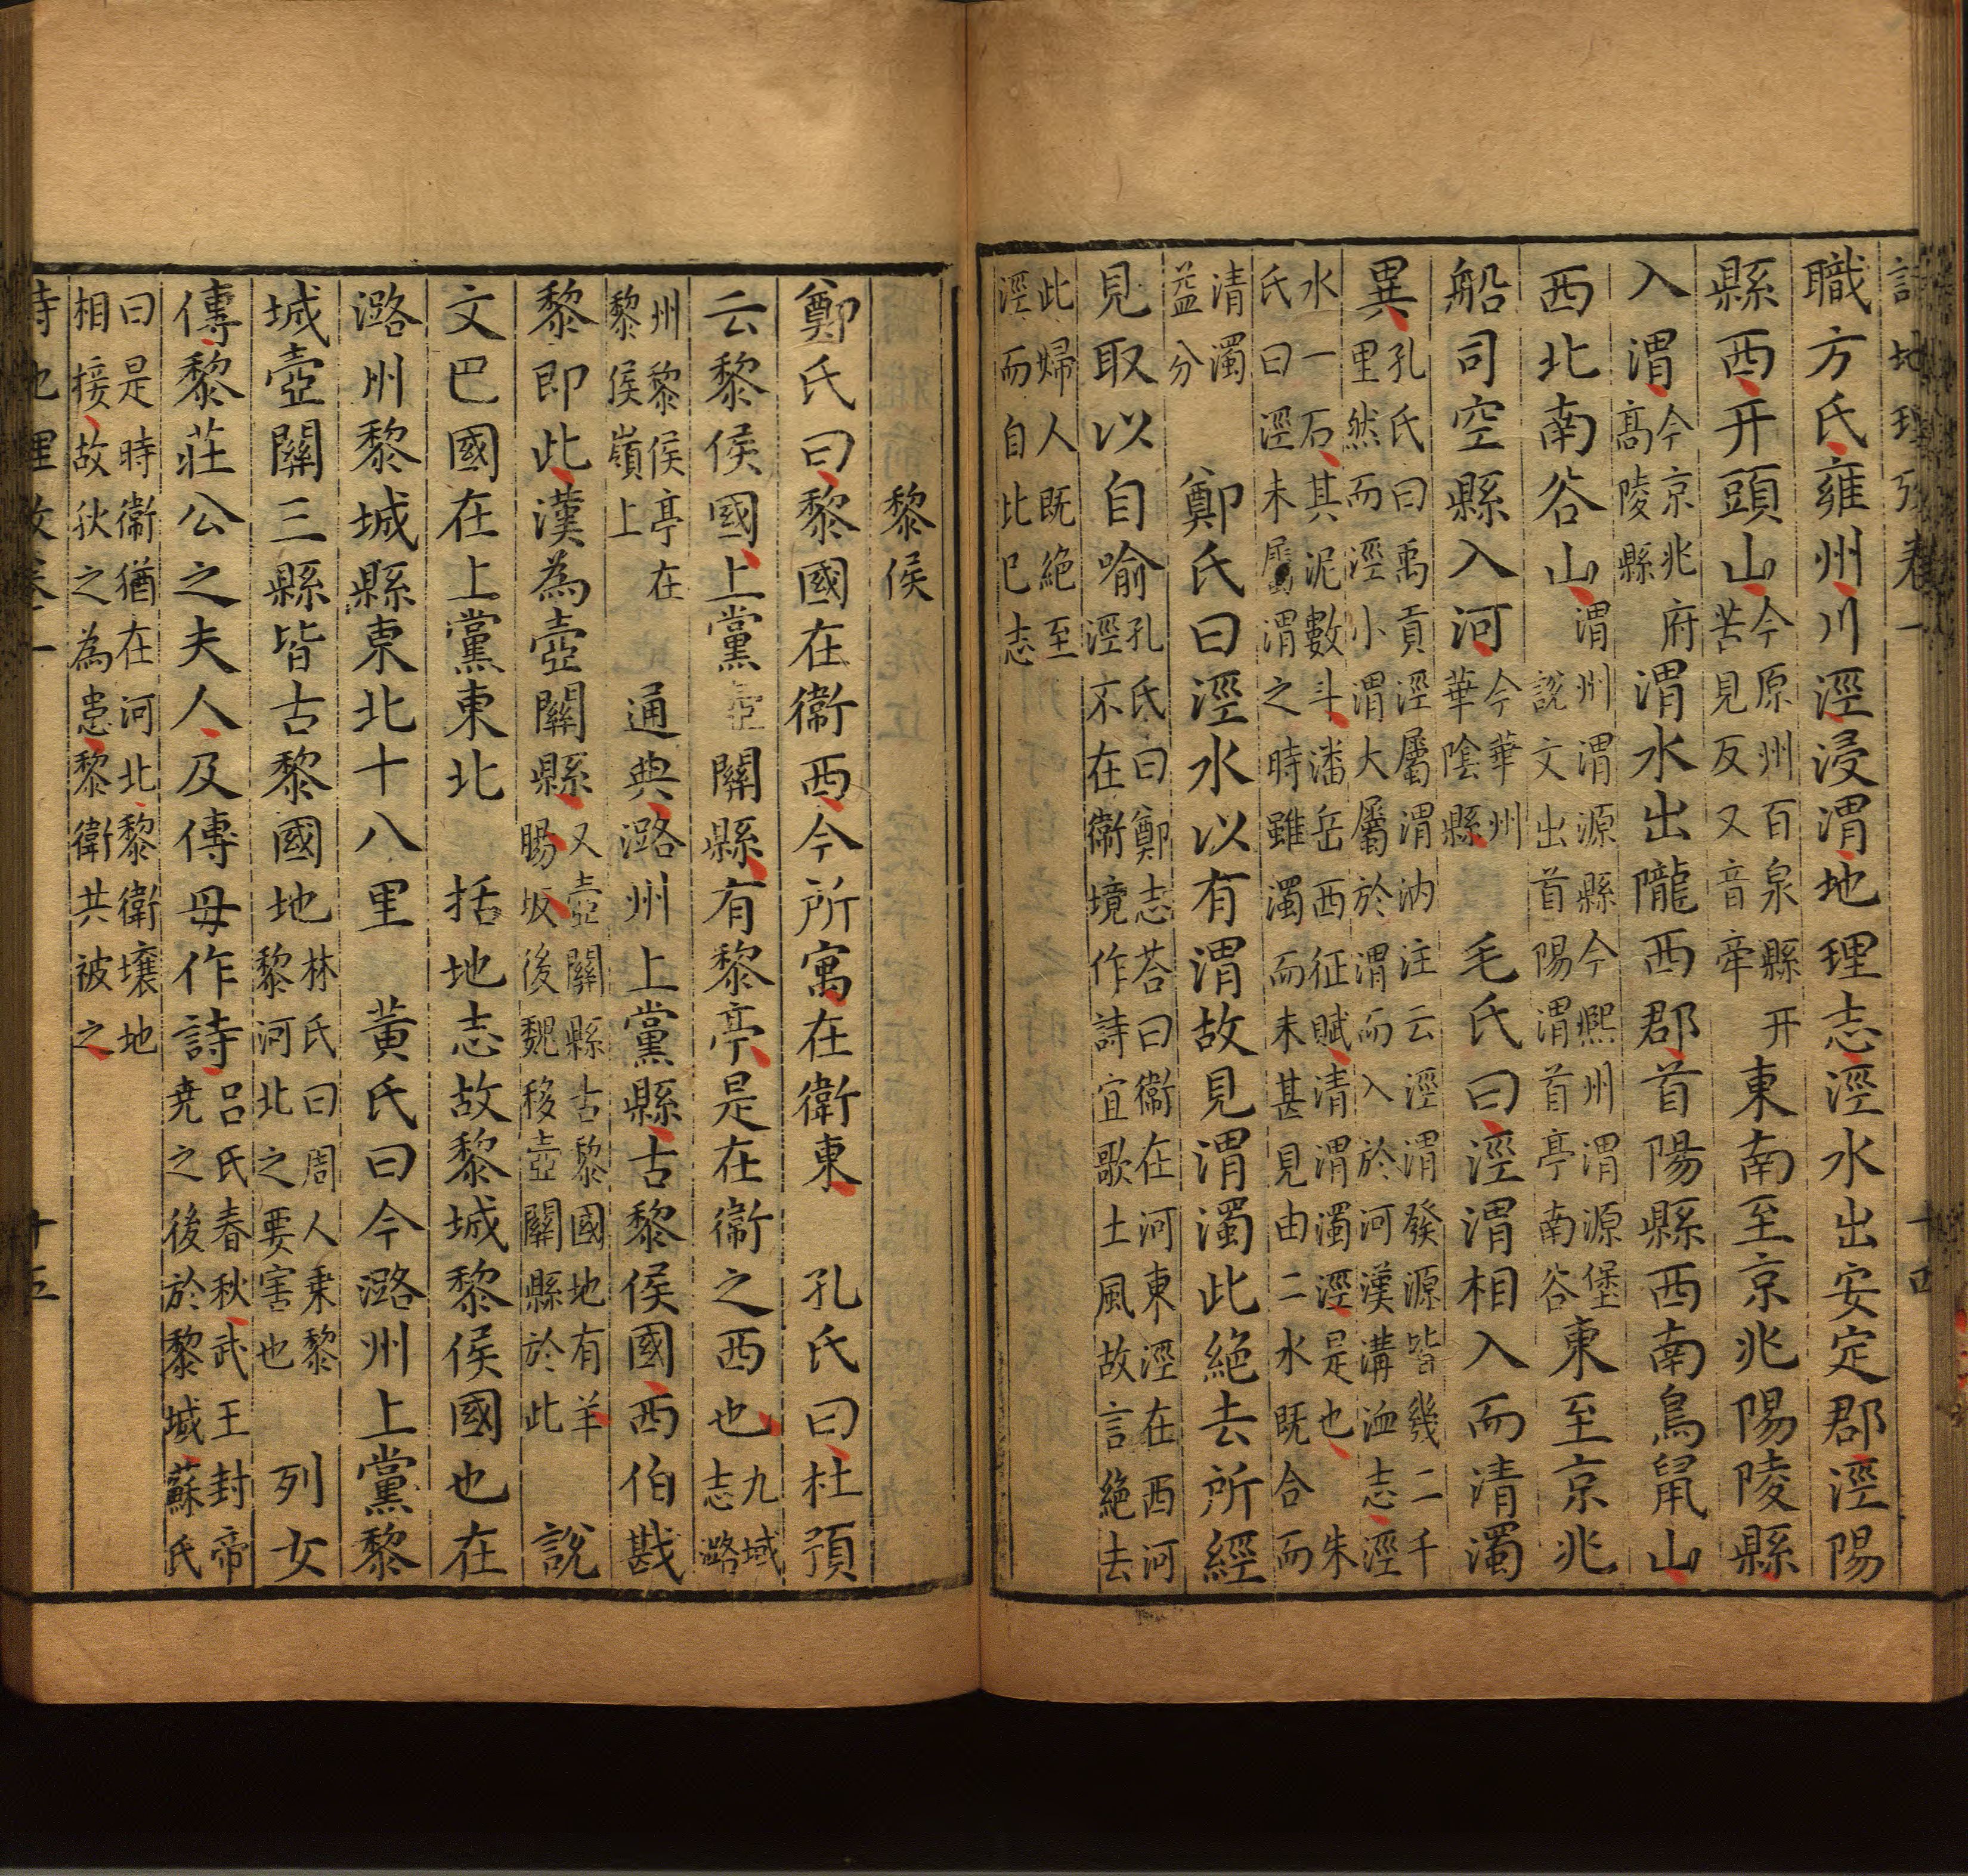 地理攷卷一 十四
職方氏雍州川涇浸渭地理志涇水出安定郡涇陽
縣西幵頭山今原州百泉縣幵苦見反又音牽東南至京兆陽陵縣
入渭今京兆府高陵縣渭水出隴西郡首陽縣西南鳥鼠山
西北南谷山渭州渭源縣今熙州渭源堡說文出首陽渭首亭南谷東至京兆
船司空縣入河今華州華陰縣 毛氏曰涇渭相入而清濁
異孔氏曰禹貢涇屬渭汭注云涇渭發源皆幾二千里然而涇小渭大屬於渭而入於河漢溝洫志涇
水一石其泥數斗潘岳西征賦清渭濁涇是也朱氏曰涇未屬渭之時雖濁而未甚見由二水既合而
清濁益分 鄭氏曰涇水以有渭故見渭濁此絕去所經
見取以自喻孔氏曰鄭志荅曰衞在河東涇在西河涇不在衞境作詩宜歌土風故言絕去
此婦人既絕至涇而自比已志
黎侯
鄭氏曰黎國在衞西今所寓在衛東 孔氏曰杜預
云黎侯國上黨壺關縣有黎亭是在衞之西也九域志潞
州黎侯亭在黎侯嶺上 通典潞州上黨縣古黎侯國西伯戡
黎即此漢為壺關縣又壺關縣古黎國地有羊腸坂後魏移壺關縣於此 說
文巴國在上黨東北 括地志故黎城黎侯國也在
潞州黎城縣東北十八里 黃氏曰今潞州上黨黎
城壺關三縣皆古黎國地林氏曰周人乘黎黎河北之要害也 列女
傳黎莊公之夫人及傅母作詩呂氏春秋武王封帝堯之後於黎城蘇氏
曰是時衞猶在河北黎衛壤地相接故狄之為患黎衛共被之
詩地理攷卷一 十五